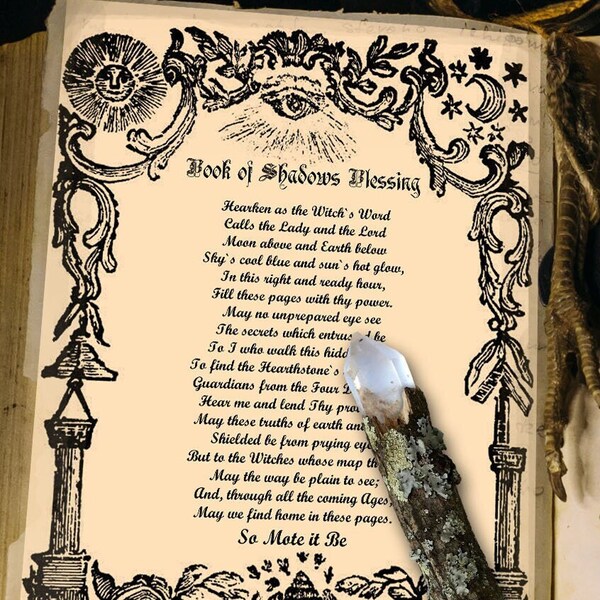 Book of Shadows Blessing
Hearken as the Witch`s Word
Calls the Lady and the Lord
Moon above and Earth below
Shy`s cool blue and sun`s hot glow,
In this right and ready hour,
Fill these pages with thy power.
May no unprepared eye see
The secrets which entrus be
To I who walk this hid
To find the Hearthstone`s
Guardians from the Four
Hear me and lend Thy pro
May these truths of earth an
Shielded be from prying eye
But to the Witches whose map th
May the way be plain to see;
And, through all the coming Ages
May we find home in these pages.
So Mote it Be